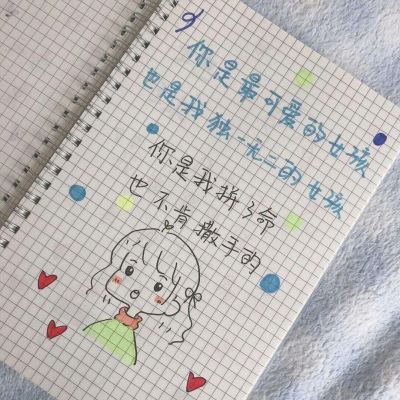 你是最可爱的女孩
也是我独一无二的女孩
你是我拼了命
也不肯撒手的